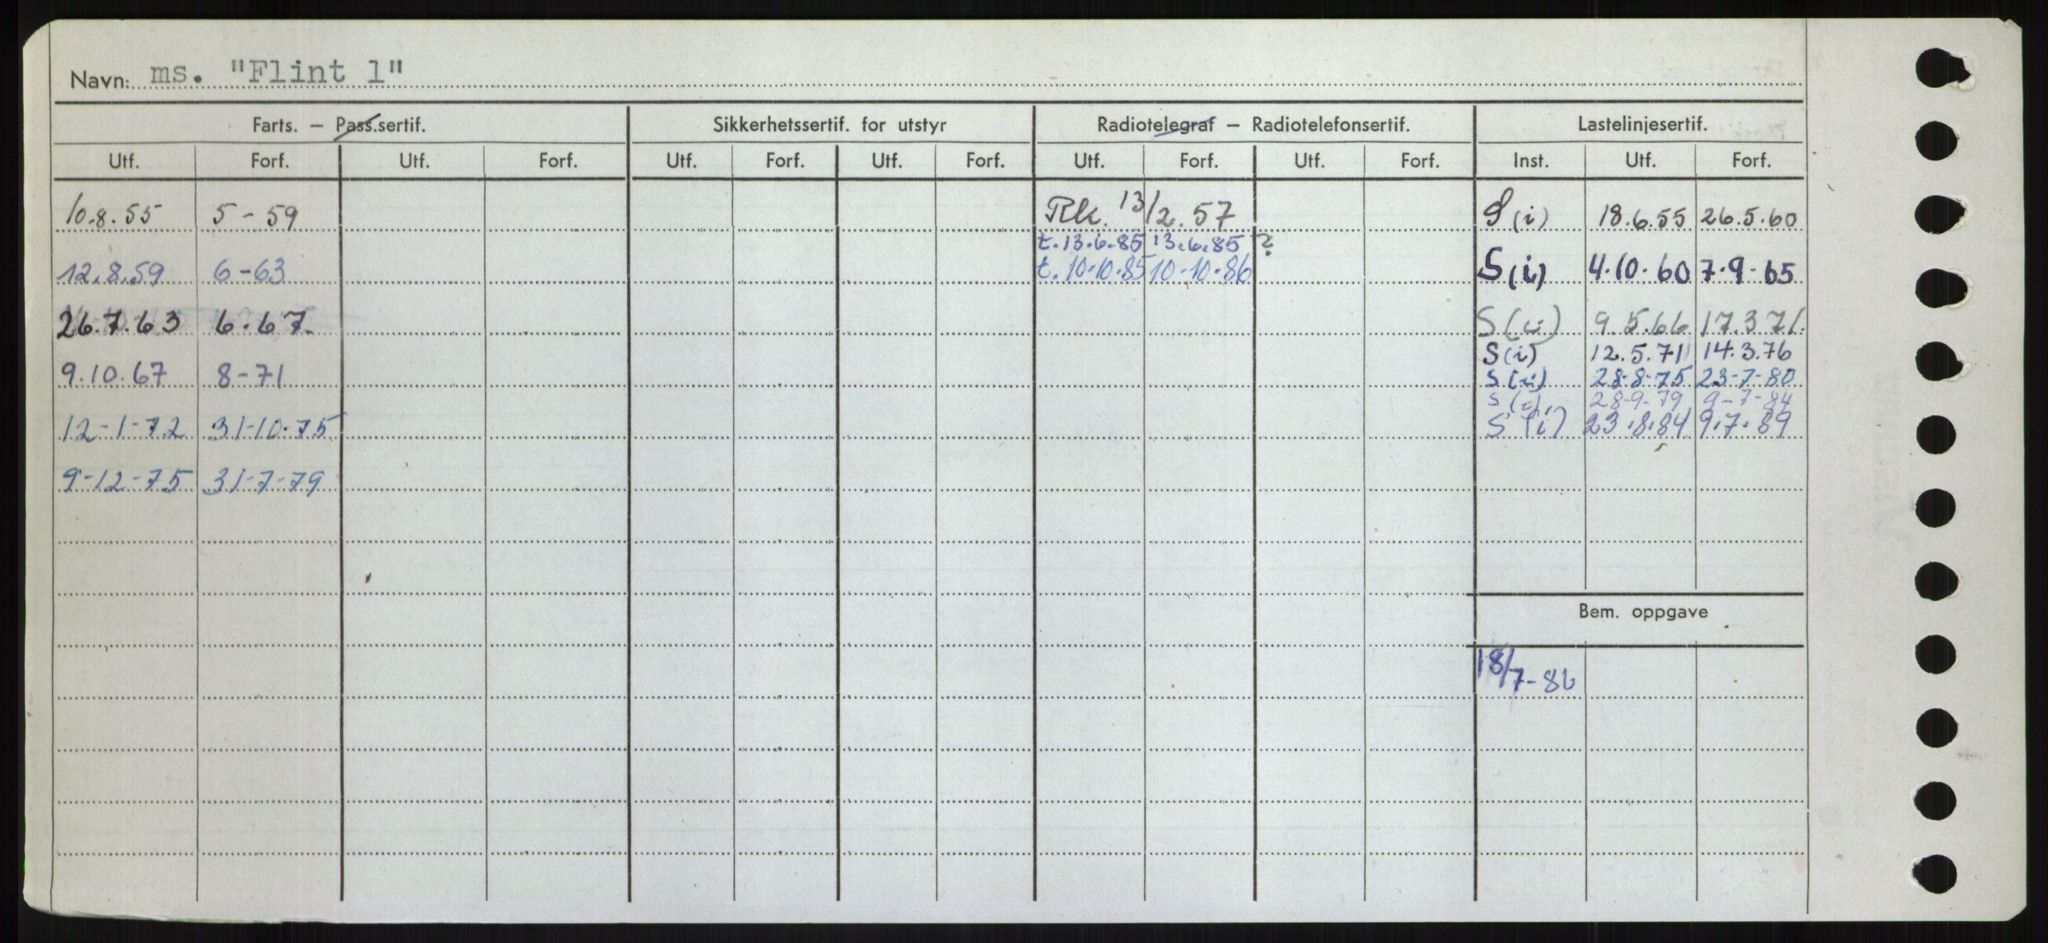 Navn: ms. "Flint 1"
Farts. – Pass.sertif. Sikkerhetssertif. for utstyr Radiotelegraf – Radiotelefonsertif. Lastelinjesertif.
Utf. Forf. Utf. Forf. Utf. Forf. Utf. Forf. Utf. Forf. Utf. Forf. Inst. Utf. Forf.
10.8.55 5-59 Rk. 13/2.57 S(i) 18.6.55 26.5.60
t.13.6.85 13.6.85 ?
12.8.59 6-63 t.10.10.85 10-10-86 S(i) 4.10.60 7.9.65
26.7.63 6.67. S(i) 9.5.66 17.3.71.
S(i) 12.5.71 14.3.76
9.10.67 8-71 S(i) 28-8-75 23-7-80
S(i) 28-9-79 9-7-84
12-1-72 31-10-75 S(i) 23.8.84 9.7.89
9-12-75 31-7-79
Bem. oppgave
18/7-86